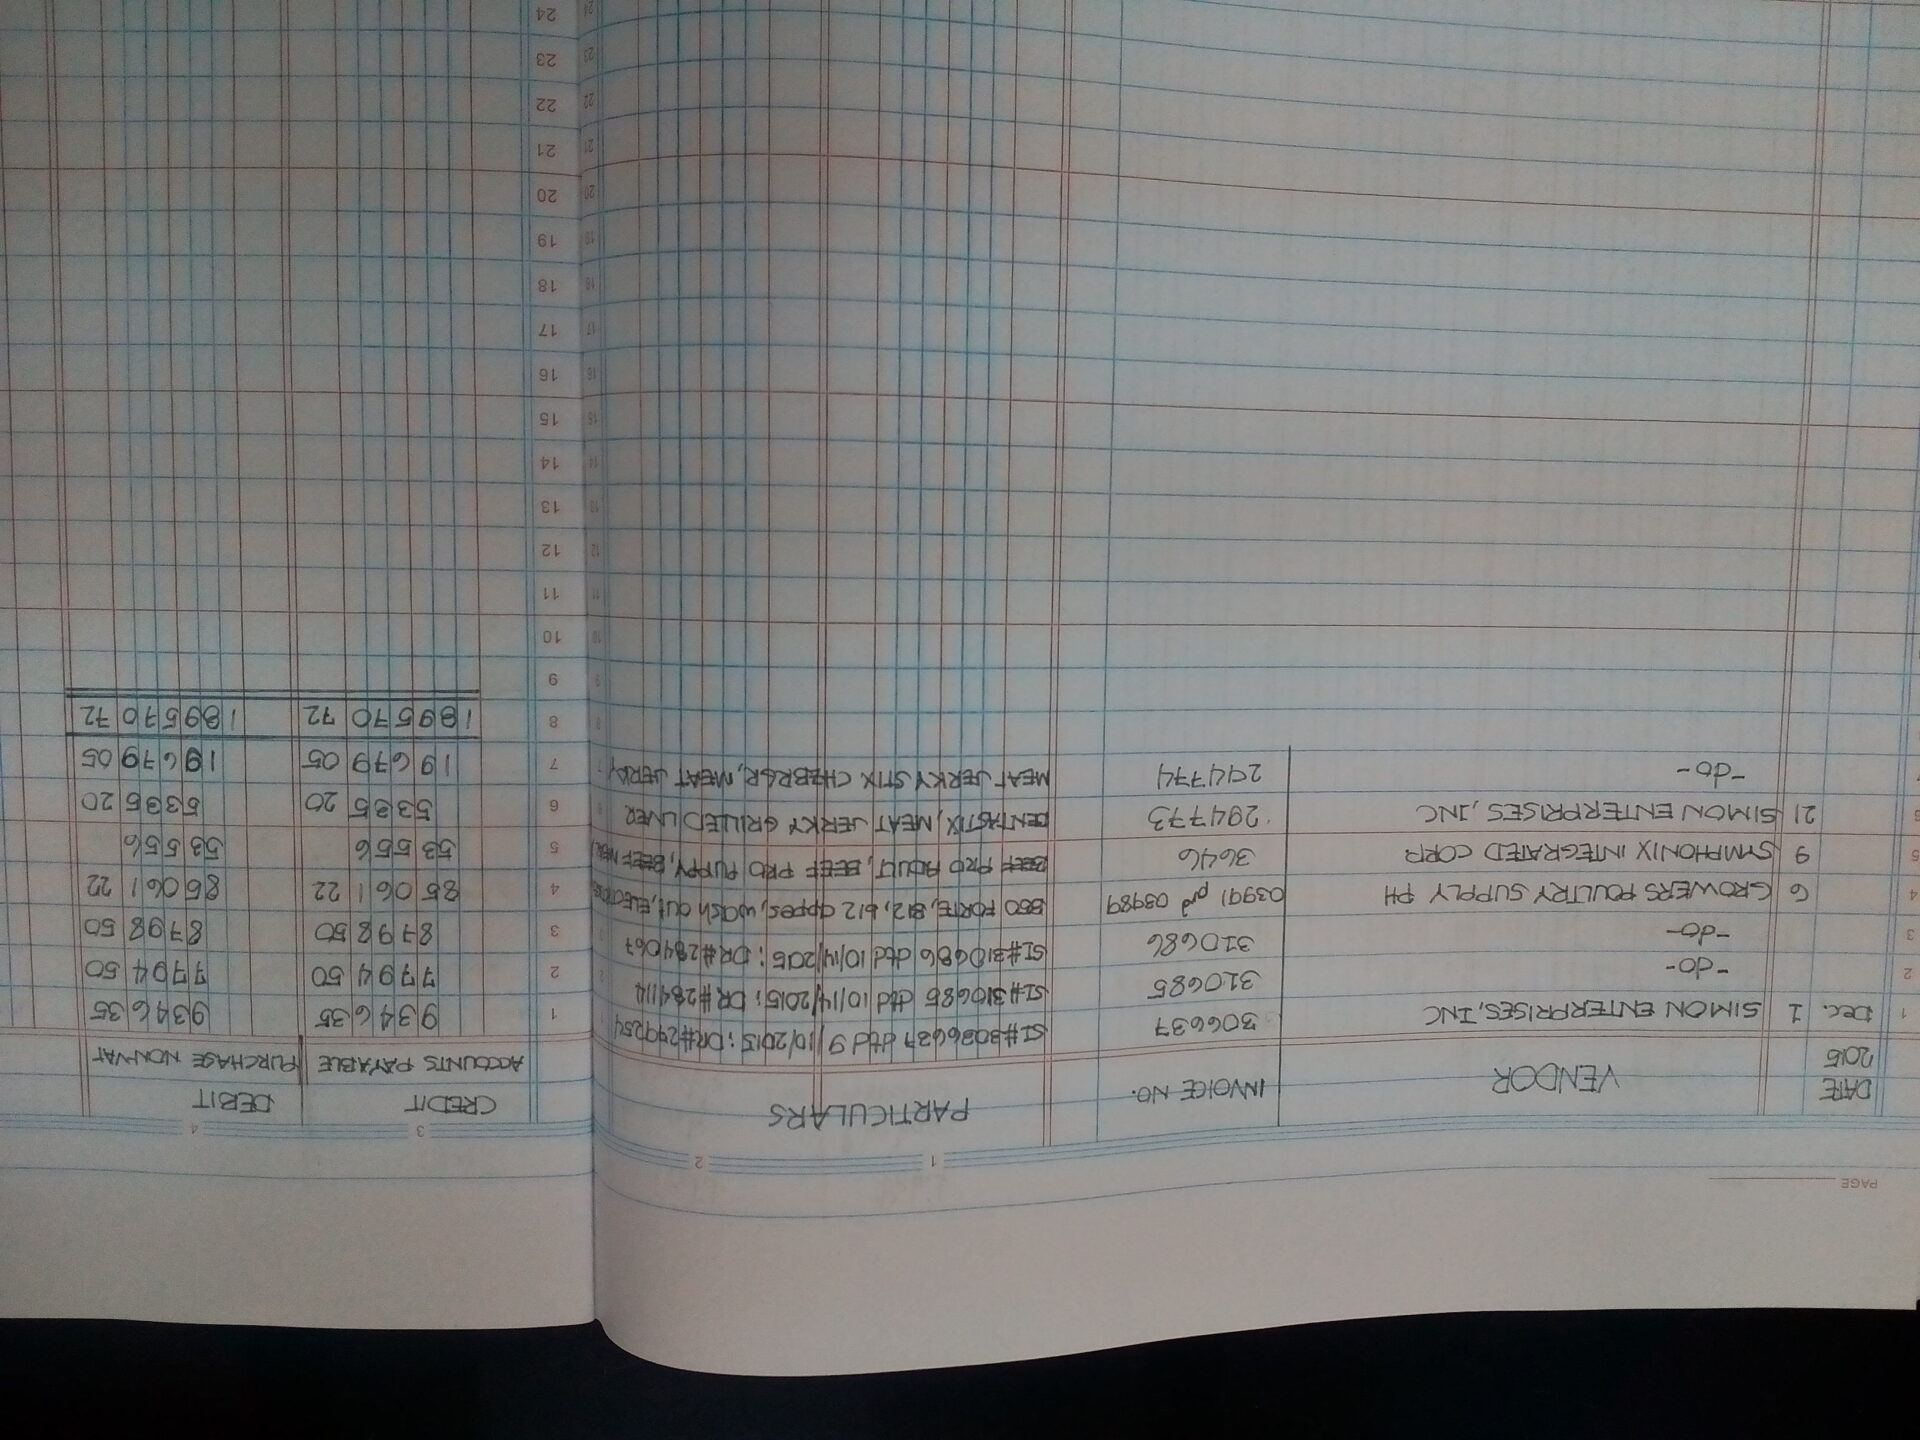 PAGE
1 2 3 4
DATE VENDOR INVOICE NO. PARTICULARS CREDIT DEBIT
2015 ACCOUNTS PAYABLE PURCHASE NON-VAT
1 Dec. 1 SIMON ENTERPRISES, INC 306637 SI#306637 dtd 9/10/2015; DR# 1 9346 35 9346 35
2 -do- 310685 SI#310685 dtd 10/14/2015; DR#284114 2 7794 50 7794 50
3 -do- 310686 SI#310686 dtd 10/14/2015; DR#284067 3 8798 50 8798 50
4 6 GROWERS POULTRY SUPPLY PH 03991 and 03989 FORTE, B12, b12 appee, wash out, 4 85061 22 85061 22
5 9 SYMPHONIX INTEGRATED CORP 3646 BEEF PRO ADULT, BEEF PRO PUPPY, BEEF 5 53556 53556
6 21 SIMON ENTERPRISES, INC 294773 DENTASTIX, MEAT JERKY GRILLED LIVER 6 5335 20 5335 20
7 -do- 294774 MEAT JERKY STIX CHZBRGR, MEAT JERKY 7 19679 05 19679 05
8 8 189570 72 189570 72
9 9
10 10
11 11
12 12
13 13
14 14
15 15
16 16
17 17
18 18
19 19
20 20
21 21
22 22
23 23
24 24